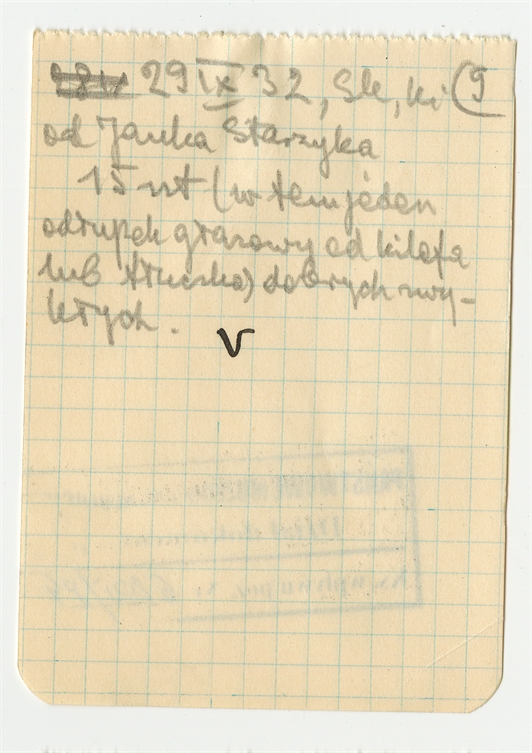 29 IX 32, Sk, ki (9
od Janka Starzyka
15 nt (w tem jeden
odłupek głazowy od kilofa
lub tłuczka) dobrych zwy-
kłych.
V